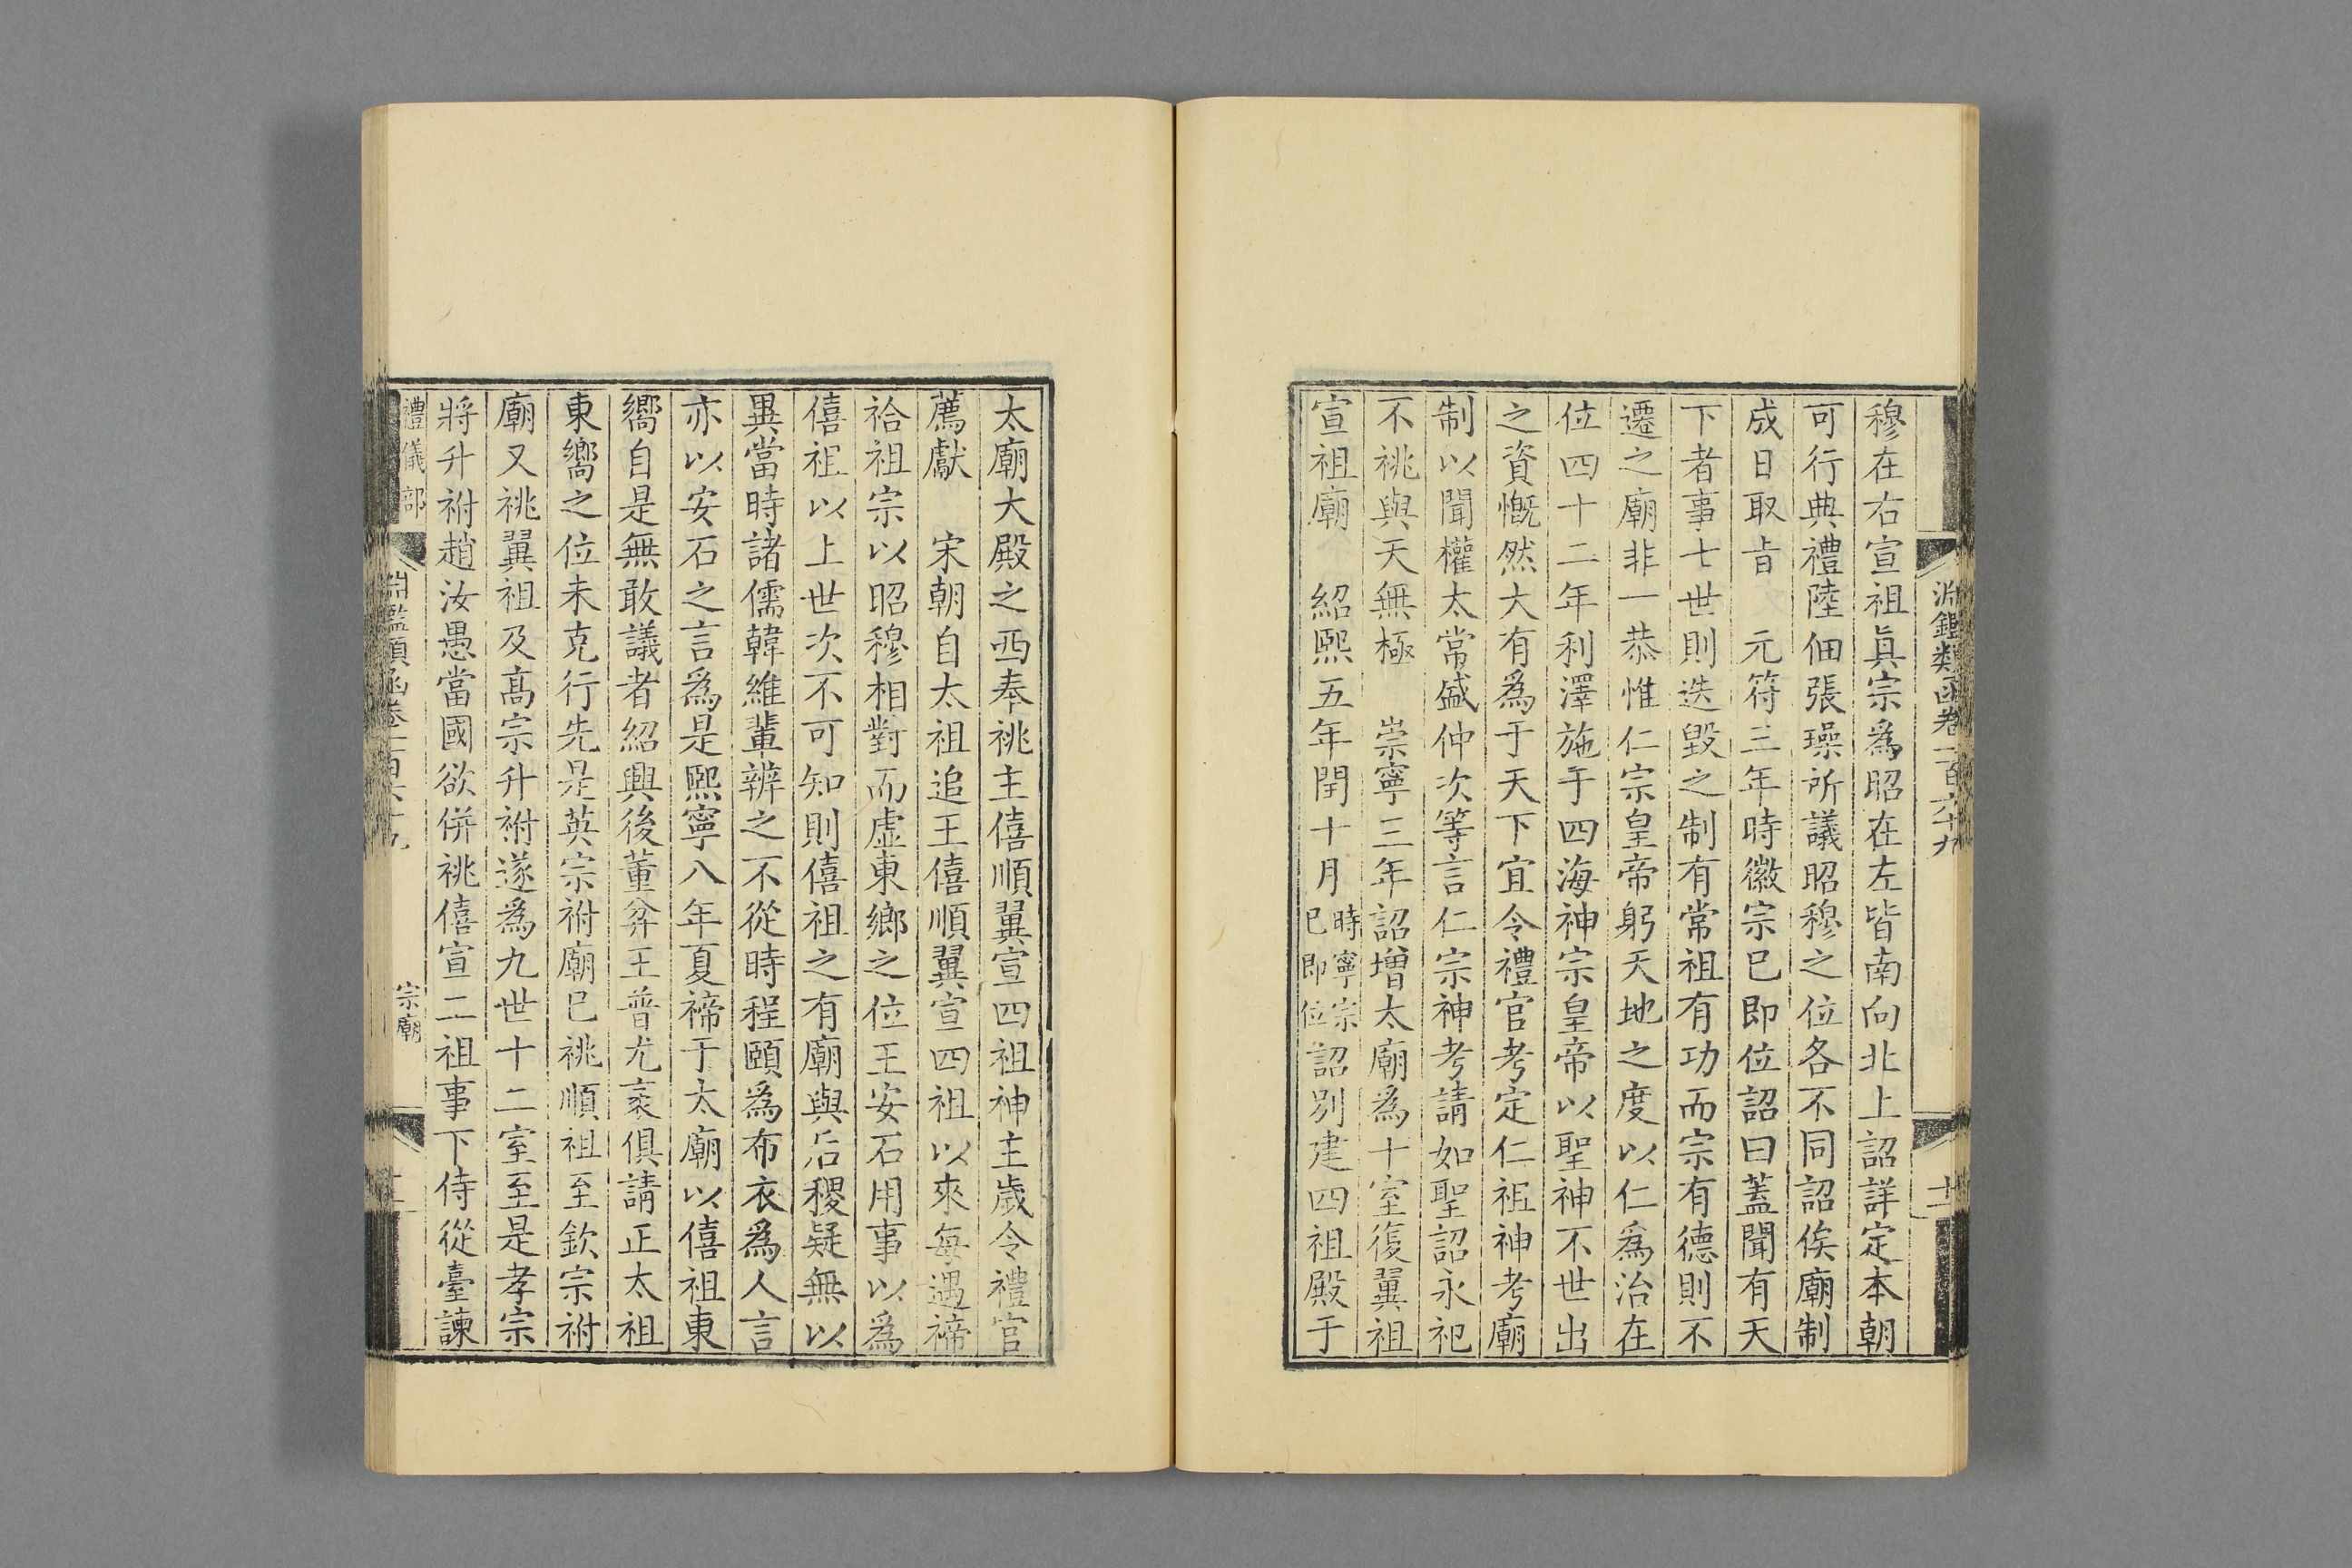 淵鑑類函卷一百六十九
十一
穆在右宣祖眞宗爲昭在左皆南向北上詔詳定本朝
可行典禮陸佃張璪所議昭穆之位各不同詔俟廟制
成日取旨　元符三年時徽宗已即位詔曰蓋聞有天
下者事七世則迭毀之制有常祖有功而宗有德則不
遷之廟非一恭惟仁宗皇帝躬天地之度以仁爲治在
位四十二年利澤施于四海神宗皇帝以聖神不世出
之資慨然大有爲于天下宜令禮官考定仁祖神考廟
制以聞權太常盛仲次等言仁宗神考請如聖詔永祀
不祧與天無極　崇寧三年詔增太廟爲十室復翼祖
宣祖廟　紹熙五年閏十月時寧宗已即位詔別建四祖殿于
太廟大殿之西奉祧主僖順翼宣四祖神主歲令禮官
薦獻　宋朝自太祖追王僖順翼宣四祖以來每遇禘
祫祖宗以昭穆相對而虛東鄉之位王安石用事以爲
僖祖以上世次不可知則僖祖之有廟與后稷疑無以
異當時諸儒韓維輩辨之不從時程頤爲布衣爲人言
亦以安石之言爲是熙寧八年夏禘于太廟以僖祖東
嚮自是無敢議者紹興後董弅王普尤袤俱請正太祖
東嚮之位未克行先是英宗祔廟已祧順祖至欽宗祔
廟又祧翼祖及高宗升祔遂爲九世十二室至是孝宗
將升祔趙汝愚當國欲併祧僖宣二祖事下侍從臺諫
禮儀部
淵鑑類函卷一百六十九
宗廟